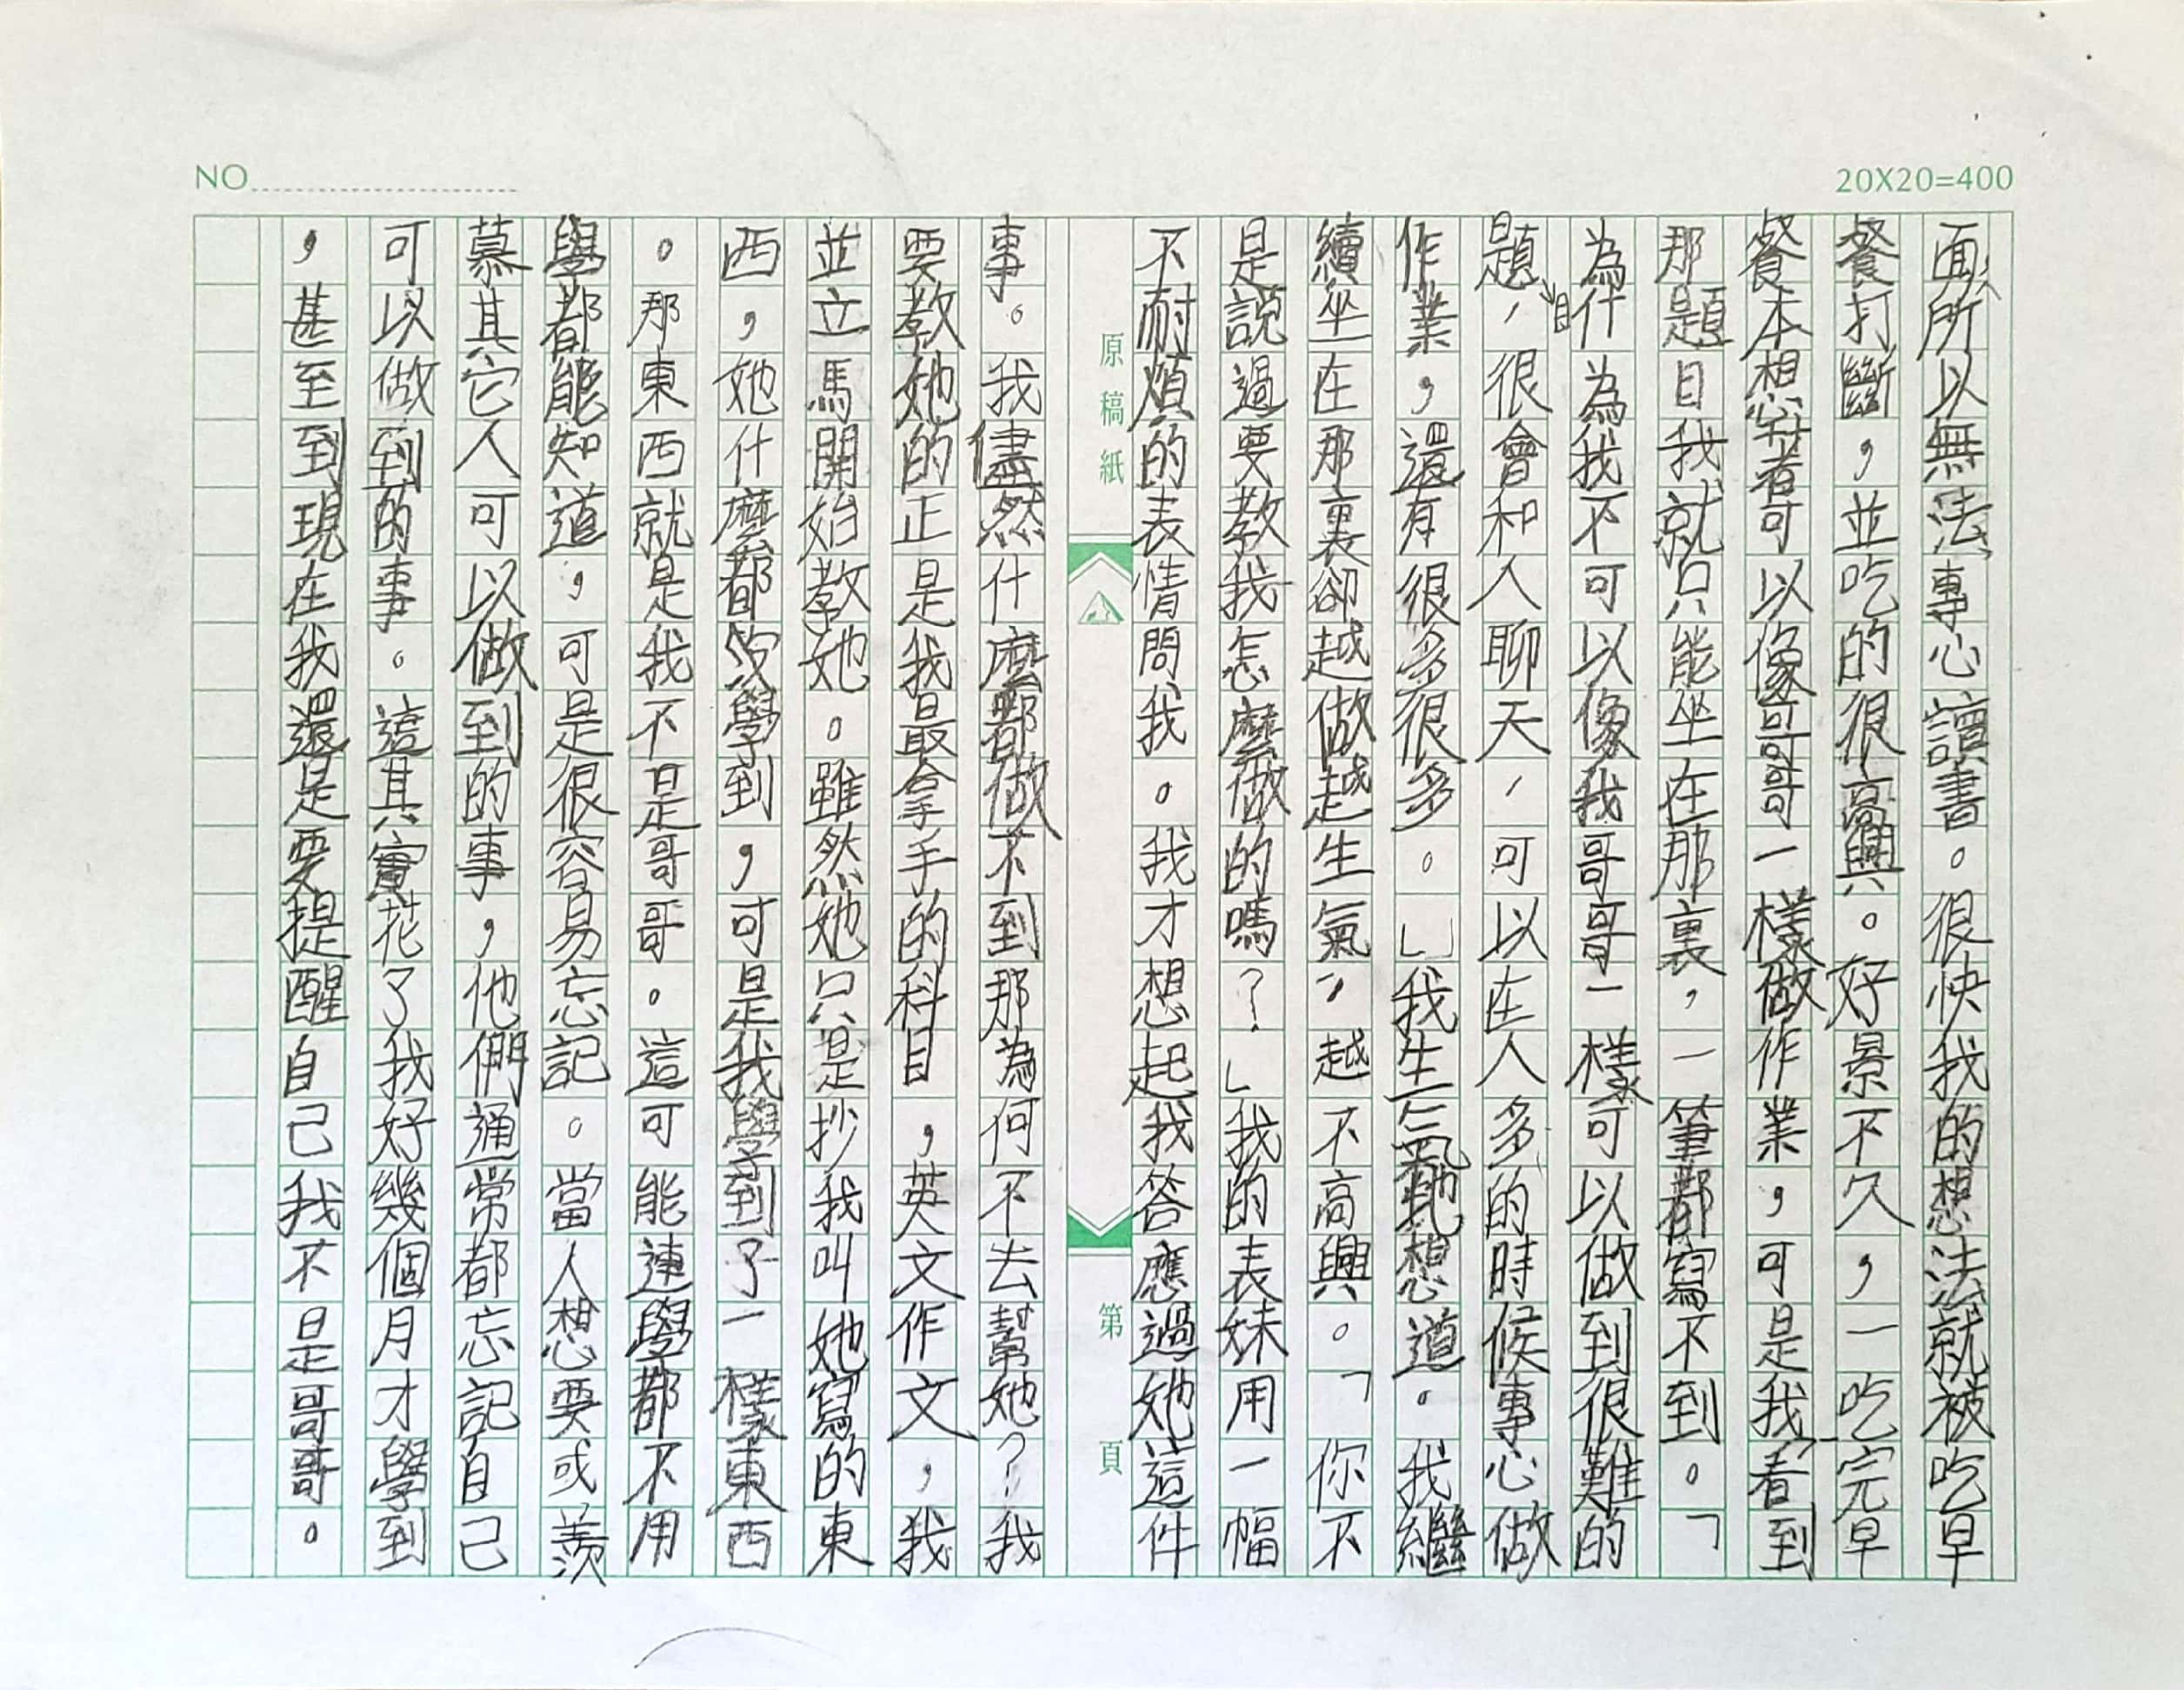 NO
20X20=400
面,所以無法專心讀書。很快我的想法就被吃早
餐打斷,並吃的很高興。好景不久,一吃完早
餐本想著可以像哥哥一樣做作業,可是我一看到
那題目我就只能坐在那裏,一筆都寫不到。「
為什為我不可以像我哥哥一樣可以做到很難的
題目,很會和人聊天,可以在人多的時候專心做
作業,還有很多很多。」我生氣地想道。我繼
續坐在那裏卻越做越生氣,越不高興。「你不
是說過要教我怎麼做的嗎?」我的表妹用一幅
不耐煩的表情問我。我才想起我答應過她這件
原稿紙
第 頁
事。我儘然什麼都做不到那為何不去幫她?我
要教她的正是我最拿手的科目,英文作文,我
並立馬開始教她。雖然她只是抄我叫她寫的東
西,她什麼都沒學到,可是我學到了一樣東西
。那東西就是我不是哥哥。這可能連學都不用
學都能知道,可是很容易忘記。當人想要或羨
慕其它人可以做到的事,他們通常都忘記自己
可以做到的事。這其實花了我好幾個月才學到
,甚至到現在我還是要提醒自己我不是哥哥。